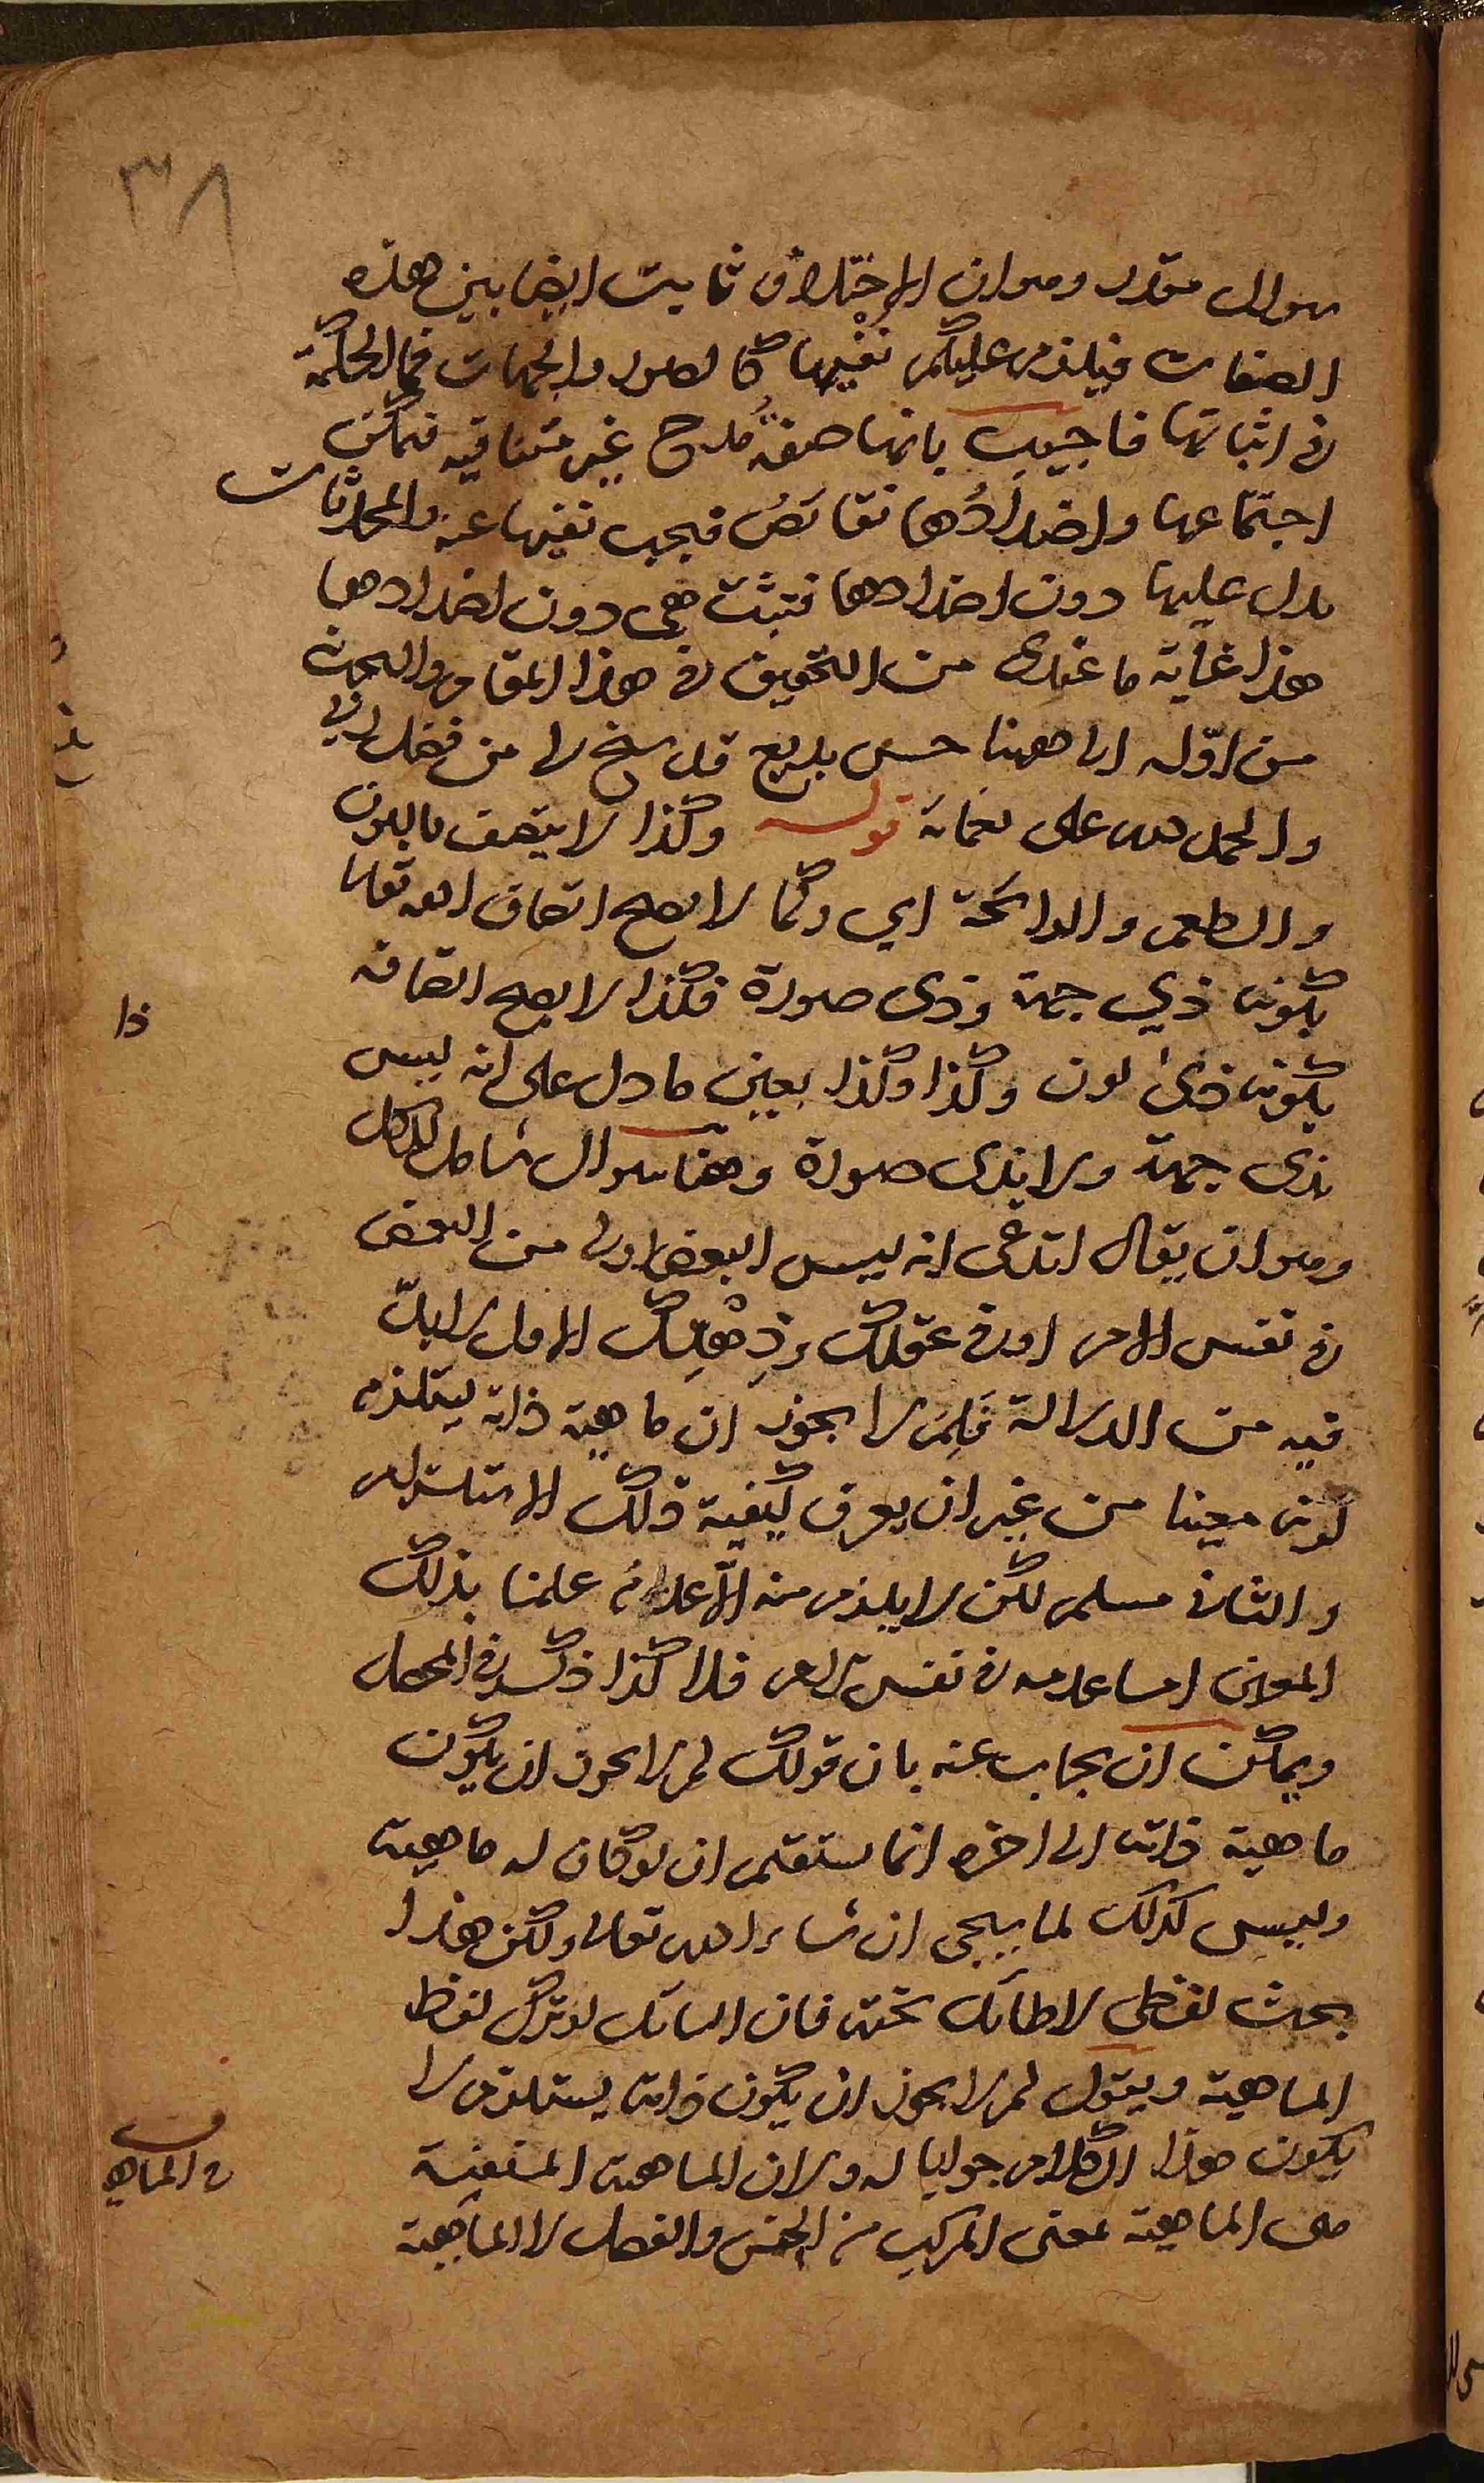 ٣٨
سوال مقدر وهو ان الاختلاف ثابت ايضا بين هذه
الصفات فيلزم عليكم نفيها كالصور والجهات فما الحكمة
في اثباتها فاجيب بانها صفة مدح غير متنافيه فيمكن
اجتماعها واضدادُها نقائصُ فيجب نفيها عنه والمحدثات
يدل عليها دون اضدادها فتثبت هى دون اضدادها
هذا غاية ما عندى من التحقيق في هذا المقام والبحث
من اوّله الى ههنا حسن بديع قد سنح لى من فضل ربي
والحمد لله على نعمائه قوله وكذا لا يتصف باللون
والطعم والرائحة اي وكما لا يصح اتصاف الله تعالى
بكونه ذي جهة وذى صورة فكذا لا يصح اتصافه
بكونه ذى لون وكذا وكذا بعين ما دل على انه ليس
بذى جهة ولا بذى صورة وهنا سوال شامل للكل
وهو ان يقال اتدعى انه ليس البعض اولى من البعض
في نفس الامر او في عقلك وذِهْنِك الاول لا بدّ
فيه من الدلالة فَلِمَ لا يجوز ان ماهية ذاته يستلزم
لونا معينا من غير ان يعرف كيفية ذلك الاستلزام
والثاني مسلم لكن لا يلزم منه الّا عدمُ علمنا بذلك
المعين اما عدمه في نفس الامر فلا كذا ذكر في المحصل
ويمكن ان يجاب عنه بان قولك لم لا يجوز ان يكون
ماهية ذاته الى اخره انما يستقيم ان لو كان له ماهية
وليس كذلك لما سيجى ان شاء الله تعالى ولكن هذا
بحث لفظى لا طائل تحته فان السائل لو ترك لفظ
الماهية ويقول لم لا يجوز ان يكون ذاته يستلزم لا
يكون هذا الكلام جوابا له ولان الماهية المنفية
هى الماهية بمعنى المركب من الجنس والفصل لا الماهية
ذا